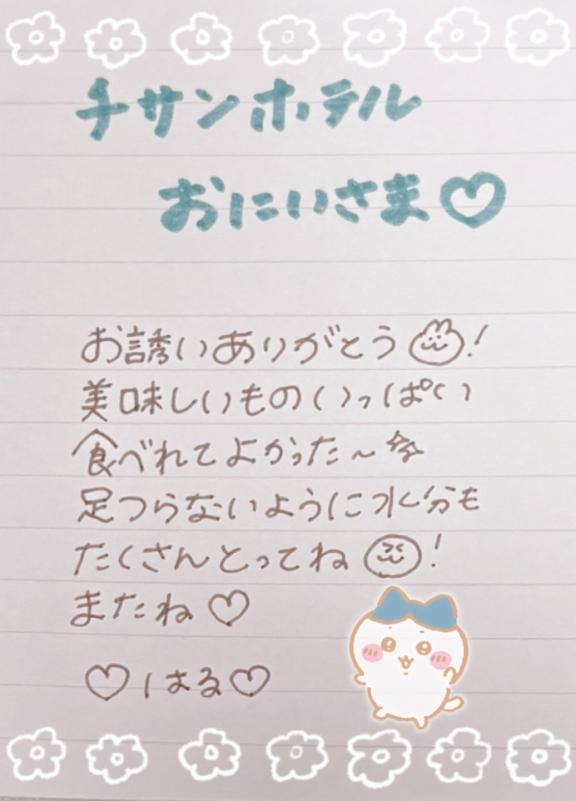 チサンホテル
おにいさま♡
お誘いありがとう!
美味しいものいっぱい
食べれてよかった〜
足つらないように水分も
たくさんとってね!
またね♡
♡はる♡